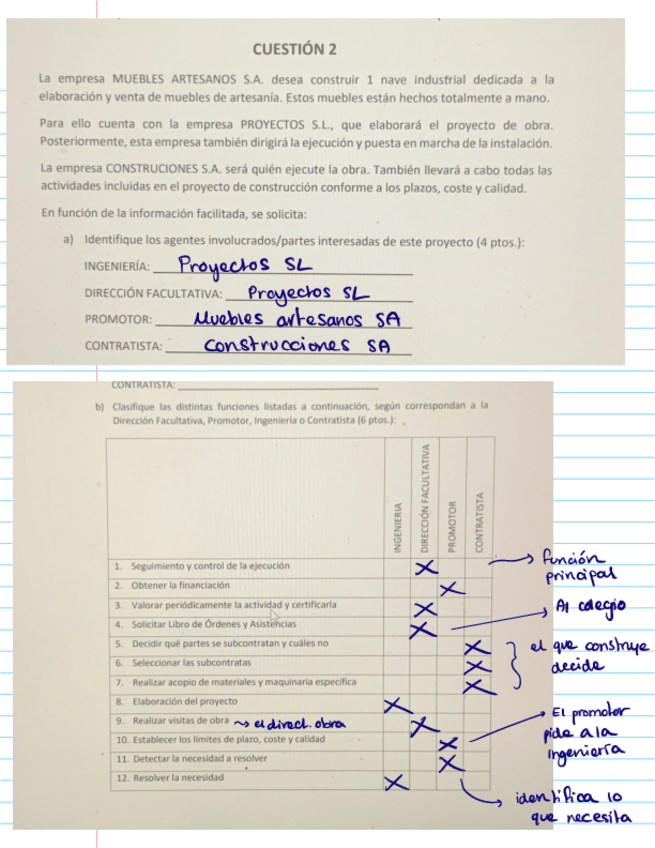 CUESTIÓN 2
La empresa MUEBLES ARTESANOS S.A. desea construir 1 nave industrial dedicada a la
elaboración y venta de muebles de artesanía. Estos muebles están hechos totalmente a mano.
Para ello cuenta con la empresa PROYECTOS S.L., que elaborará el proyecto de obra.
Posteriormente, esta empresa también dirigirá la ejecución y puesta en marcha de la instalación.
La empresa CONSTRUCIONES S.A. será quién ejecute la obra. También llevará a cabo todas las
actividades incluidas en el proyecto de construcción conforme a los plazos, coste y calidad.
En función de la información facilitada, se solicita:
a) Identifique los agentes involucrados/partes interesadas de este proyecto (4 ptos.):
INGENIERÍA: Proyectos SL
DIRECCIÓN FACULTATIVA: Proyectos SL
PROMOTOR: Muebles artesanos SA
CONTRATISTA: Construcciones SA
CONTRATISTA:
b) Clasifique las distintas funciones listadas a continuación, según correspondan a la
Dirección Facultativa, Promotor, Ingeniería o Contratista (6 ptos.):
INGENIERIA
DIRECCIÓN FACULTATIVA
PROMOTOR
CONTRATISTA
1. Seguimiento y control de la ejecución X
función
principal
2. Obtener la financiación X
3. Valorar periódicamente la actividad y certificarla X
4. Solicitar Libro de Órdenes y Asistencias X
Al colegio
5. Decidir qué partes se subcontratan y cuáles no X
6. Seleccionar las subcontratas X
7. Realizar acopio de materiales y maquinaria específica X
el que construye
decide
8. Elaboración del proyecto X
9. Realizar visitas de obra el direct. obra X
10. Establecer los límites de plazo, coste y calidad X
El promotor
pide a la
ingeniería
11. Detectar la necesidad a resolver X
12. Resolver la necesidad X
identifica lo
que necesita